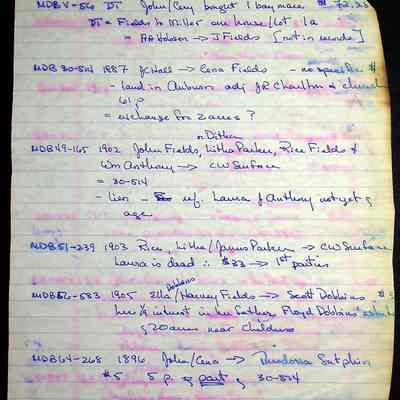 MDB V-56 DT John/Ceny bought 1 bay mare $72.25
DT = Fields to Miller one house/lot 1a
= AA Hobson → J Fields [not in records]
MDB 30-514 1887 JC Hall → Cena Fields - no specific $
- land in Auburn adj JR Charlton & church
61 p
= exchange for 2 acres?
or Litha
MDB 49-165 1902 John Fields, Litha Parker, Rice Fields &
Wm Anthony → CW Surface
= 30-514
- lien - w/. Laura J Anthony not yet of
age
MDB 51-239 1903 Rice, Litha/James Parker → CW Surface
Laura is dead ∴ $33 → 1st parties
Dobbins
MDB 52-583 1905 Ella/Harvey Fields → Scott Dobbins $
her ⅛ interest in her father Floyd Dobbins' estate
of 20 acres near childress
MDB 64-268 1896 John/Cena → Theodosia Sutphin
$5. 5 p. of part of 30-514